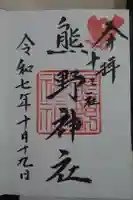 奉拝
十二社
熊野神社
令和七年十月十九日